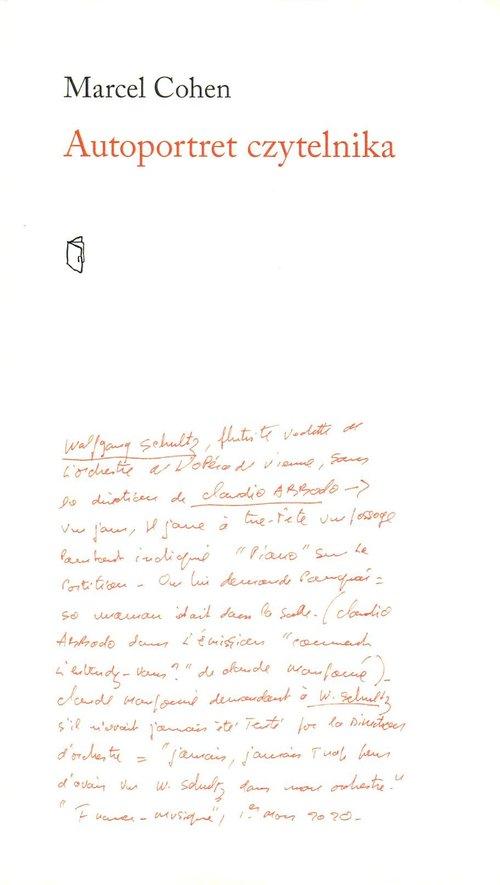 Marcel Cohen
Autoportret czytelnika
Wolfgang Schultz, flutiste vedette de
l'orchestre de l'Opéra de Vienne, sous
la direction de Claudio ABBADO →
un jour, il joue à tue-tête un passage
pourtant indiqué "Piano" sur la
Partition - On lui demande Pourquoi =
sa maman était dans la salle. (Claudio
ABBADO dans l'émission "comment
l'entendez-vous?" de Claude Maupomé) -
Claude Maupomé demandant à W. Schultz
s'il n'avait jamais été Tenté par la Direction
d'orchestre = "jamais, jamais Trop heureux
d'avoir un W. Schultz dans mon orchestre."
"France-musique", 1er Mars 2020-